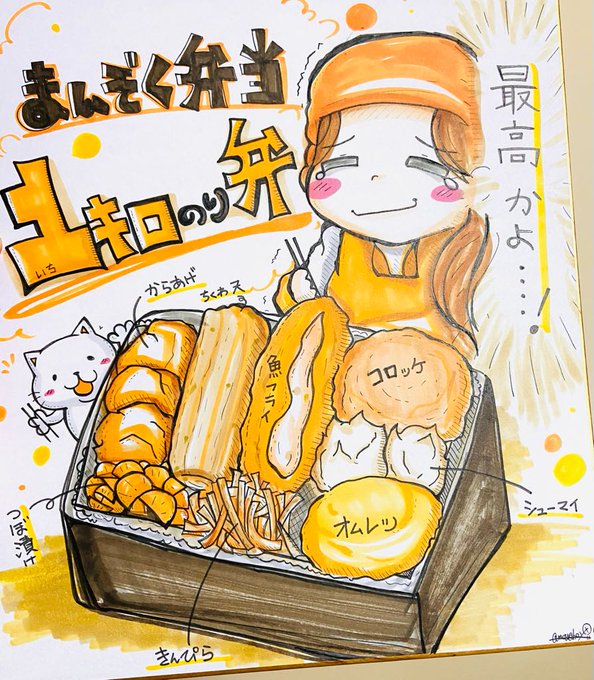 まんぞく弁当
1キロのり弁
いち
最高かよ....!
からあげ
ちくわ天
魚フライ
コロッケ
シューマイ
オムレツ
つぼ漬け
きんぴら